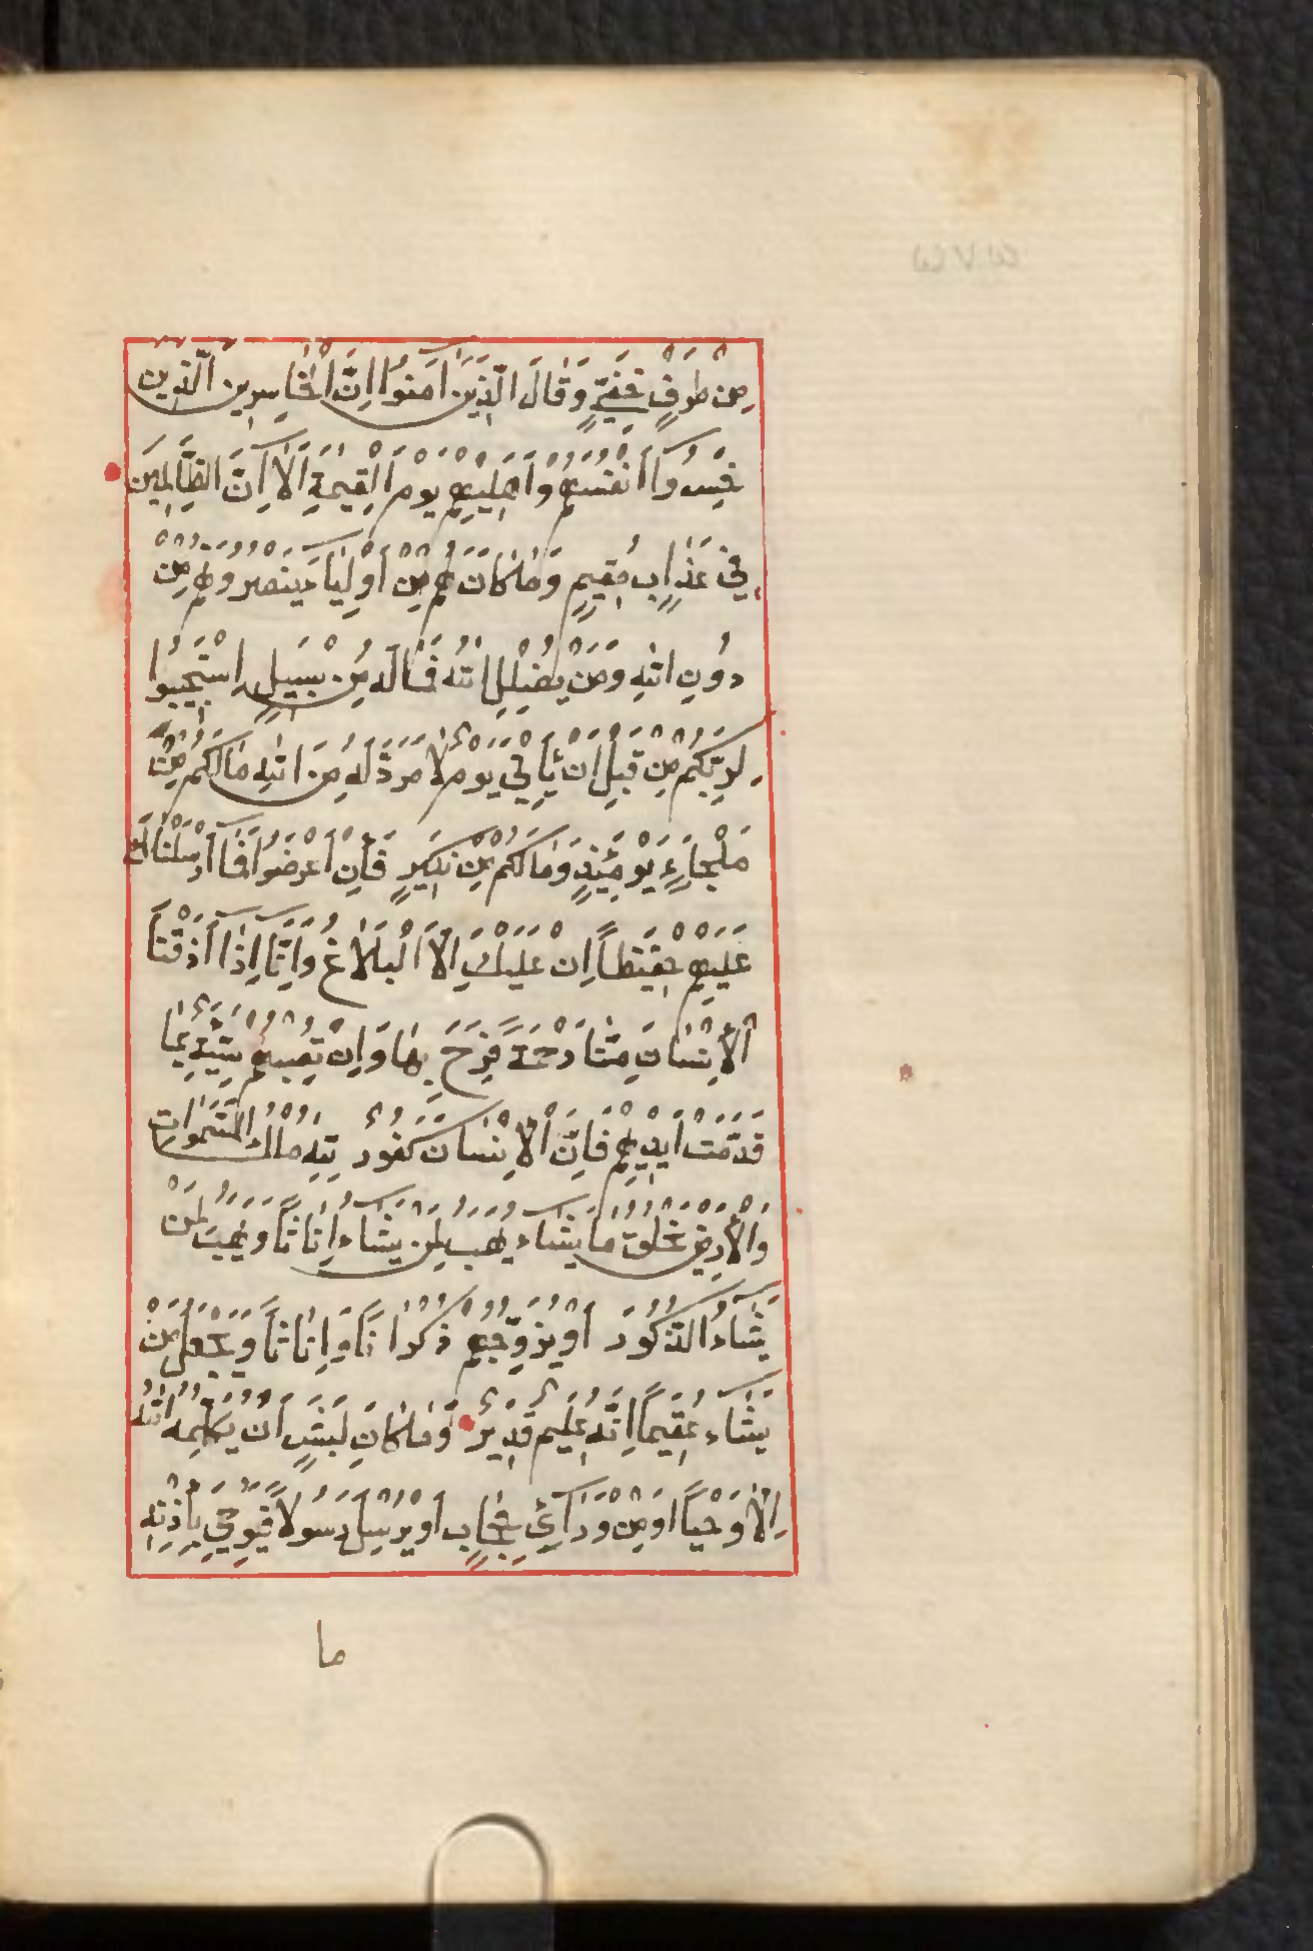 مِنْ طَرْفٍ خَفِيٍّ وَقَالَ الَّذِينَ آمَنُوا إِنَّ الْخَاسِرِينَ الَّذِينَ
خَسِرُوا أَنْفُسَهُمْ وَأَهْلِيهِمْ يَوْمَ الْقِيمَةِ أَلَا إِنَّ الظَّالِمِينَ
فِي عَذَابٍ مُقِيمٍ وَمَا كَانَ لَهُمْ مِنْ أَوْلِيَاءَ يَنْصُرُونَهُمْ مِنْ
دُونِ اللهِ وَمَنْ يُضْلِلِ اللهُ فَمَا لَهُ مِنْ سَبِيلٍ اِسْتَجِيبُوا
لِرَبِّكُمْ مِنْ قَبْلِ أَنْ يَأْتِيَ يَوْمٌ لَا مَرَدَّ لَهُ مِنَ اللهِ مَا لَكُمْ مِنْ
مَلْجَاءٍ يَوْمَئِذٍ وَمَا لَكُمْ مِنْ نَكِيرٍ فَإِنْ أَعْرَضُوا فَمَا أَرْسَلْنَاكَ
عَلَيْهِمْ حَفِيظًا إِنْ عَلَيْكَ إِلَّا الْبَلَاغُ وَإِنَّا إِذَا أَذَقْنَا
الْإِنْسَانَ مِنَّا رَحْمَةً فَرِحَ بِهَا وَإِنْ تُصِبْهُمْ سَيِّئَةٌ بِمَا
قَدَّمَتْ أَيْدِيهِمْ فَإِنَّ الْإِنْسَانَ كَفُورٌ لِلَّهِ مُلْكُ السَّمَوَاتِ
وَالْأَرْضِ يَخْلُقُ مَا يَشَاءُ يَهَبُ لِمَنْ يَشَاءُ إِنَاثًا وَيَهَبُ لِمَنْ
يَشَاءُ الذُّكُورَ أَوْ يُزَوِّجُهُمْ ذُكْرَانًا وَإِنَاثًا وَيَجْعَلُ مَنْ
يَشَاءُ عَقِيمًا إِنَّهُ عَلِيمٌ قَدِيرٌ وَمَا كَانَ لِبَشَرٍ أَنْ يُكَلِّمَهُ اللهُ
إِلَّا وَحْيًا أَوْ مِنْ وَرَائِ حِجَابٍ أَوْ يُرْسِلَ رَسُولًا فَيُوحِيَ بِإِذْنِهِ
ما